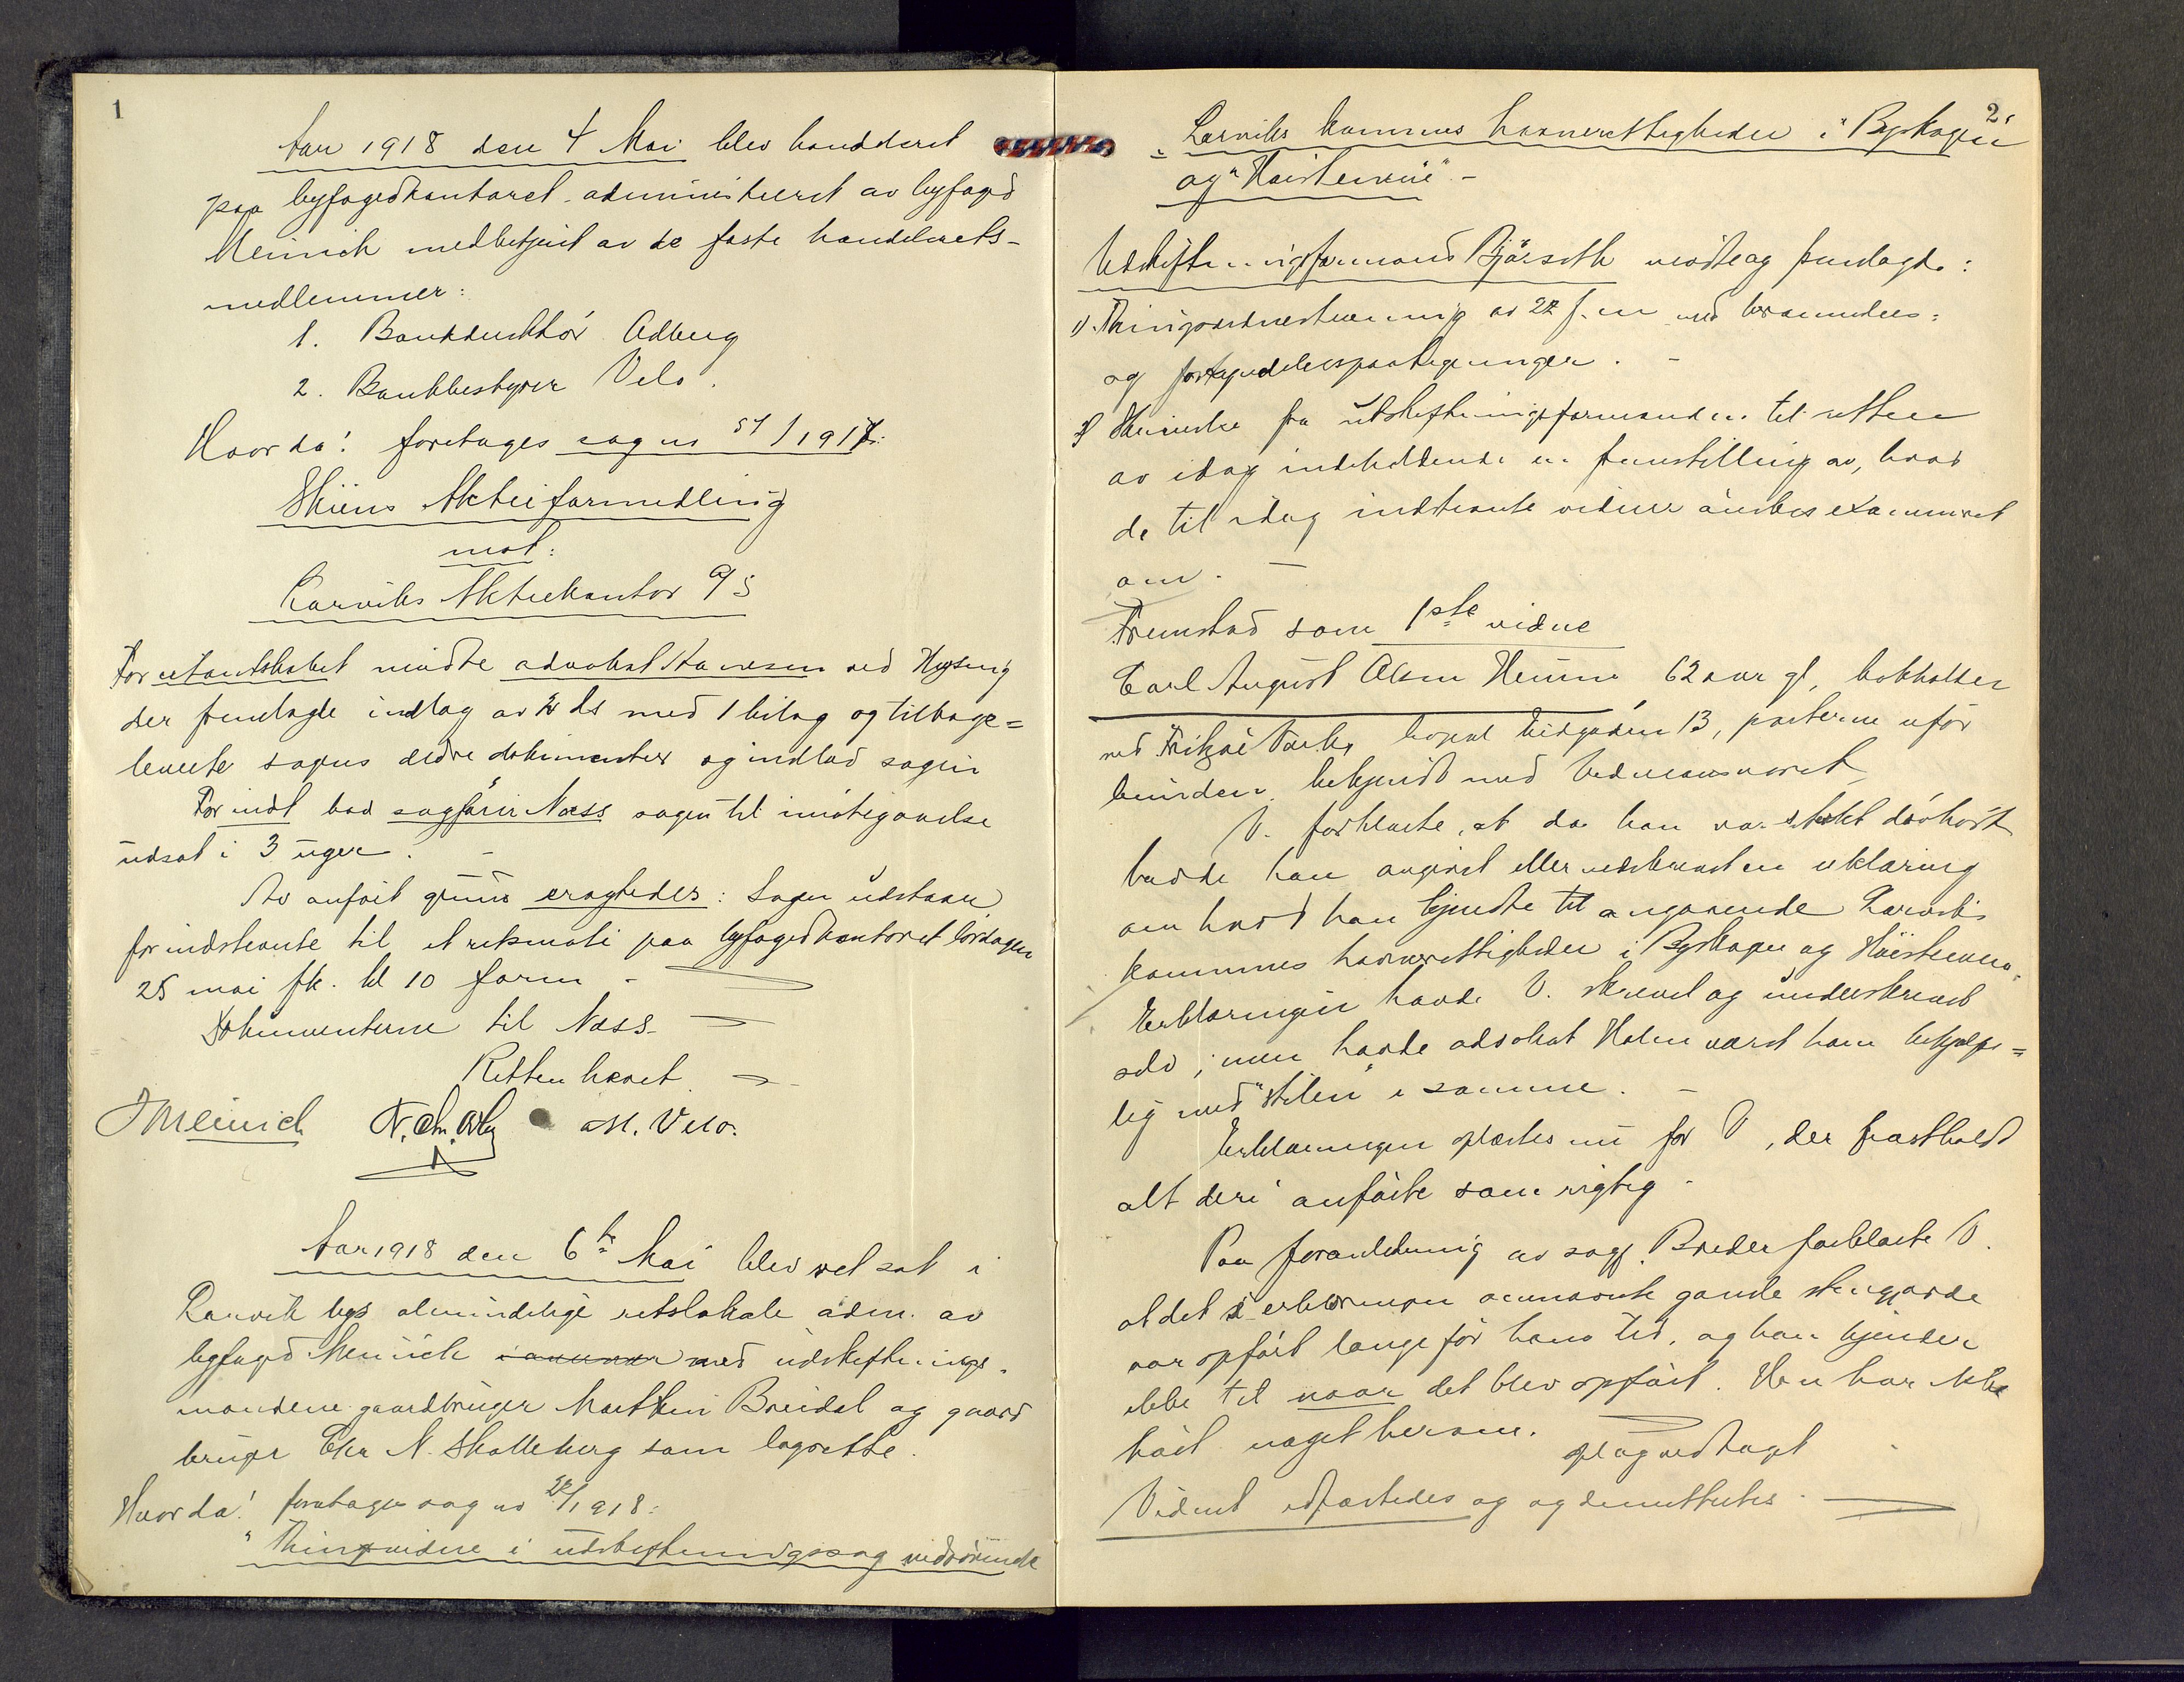 1
Aar 1918 den 4 Mai blev handelsret
paa byfogedkontoret administreret av byfoged
Meinich medbetjent av de faste handelsrets-
medlemmer:
1. Bankdirektör Adberg
2. Bankbestyrer Velo.
Hvorda: foretages sag nr 51/1917:
Skiens Aktieformidling
mot:
Larviks Aktiekontor A/S
For citantskabet mödte advokat ved Hysing
der fremlagde indlæg av ds med 1 bilag og tilbage=
leverte sagens ældre dokumenter og indlod sagen
For indst bad sagförer Næss sagen til imötegaaelse
udsat i 3 uger. -
Av anfört grund eragtedes: Sagen udstaar
forindstevnte til et retsmöte paa byfogedkontoret lördagen
25 mai fk. kl 10 form -
Dokumenterne til Næss. -
Retten hævet. -
JMeinich M. Velo.
Aar 1918 den 6te Mai blev ret sat i
Larvik bys almindelige retslokale adm. av
byfoged Meinich med udskiftnings-
mændene gaardbruger Matthin Breidal og gaard
bruger Chr N. Skalleberg som lagrette.
Hvorda: foretages sag nr 22/1918:
"Thingsvidne i udskiftningssag vedrörende
2
Larviks kommunes havnerettigheder i "Byskogen"
og "Haisteinene" -
Udskiftningsformand Bjørseth mødte og fremlagde:
1) Thingsvidnestevning av 22 f.m med berammelses=
og forkyndelsespaategninger. -
2) Skrivelse fra udskiftningsformanden til retten
av idag indeholdende en fremstilling av, hvad
de til idag indstevnte vidner önskes examineret
om. -
Fremstod som 1ste vidne
Carl August Olsen Heum 62 aar gl, bokholder
ved Fritzöe Værk, bopæl 13, parterne ufor
bunden, bekjendt med Vidneansvaret
V. forklarte, at da han var sterkt døvhört
havde han avgivet eller nedskrevet en erklæring
om hvad han kjendte til angaaende Larviks
kommunes havnerettigheder i Byskogen og Haisteinene.
Erklæringen havde V. skrevet og underskrevet
selv; men havde advokat Holm været ham behjælpe=
lig med "stilen" i samme. -
Erklæringen oplæstes nu for V, der fastholdt
alt deri anförte som rigtig -
Paa foranledning av sagf. Breder forklarte V.
at det i erklæringen omnævnte gamle stengjærde
var opfört længe för hans tid, og han kjender
ikke til naar det blev opfört. Han har ikke
hört noget herom.
opl og vedtaget
Vidnet edfæstedes og og demitteredes. -